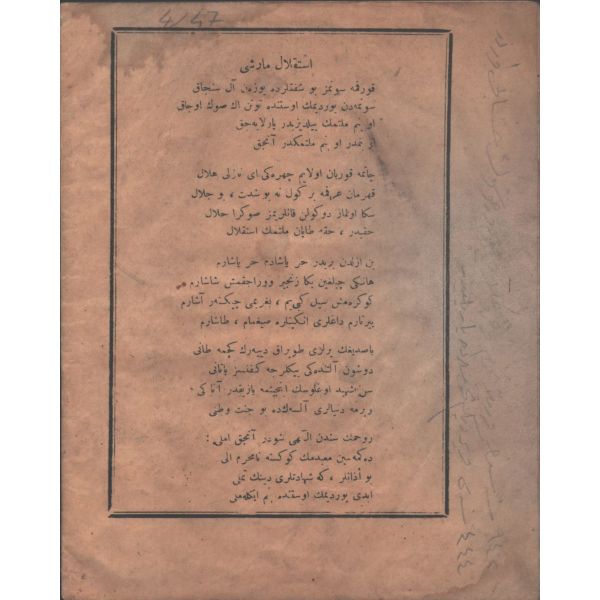 استقلال مارشى
قورقمه سونمز بو شفقلرده يوزەن آل سنجاق
سونمەدن يورديمك اوستنده توتن اك صوك اوجاق
او بنم ملتمك ييلديزيدر پارلايەجق
او بنمدر او بنم ملتمكدر آنجق
چاتمه قوربان اولايم چهرەكى اى نازلى هلال
قهرمان عرقمه بر كول نه بو شدت ، بو جلال
سكا اولماز دوكولن قانلريمز صوكرا حلال
حقيدر ، حقه طاپان ملتمك استقلال
بن ازلدن بريدر حر ياشادم حر ياشارم
هانكى چيلغين بكا زنجير ووراجقمش شاشارم
كوكرەمش سيل كبى يم ، بندیمى چيكنەر آشارم
ييرتارم داغلرى انكينلره صيغمام ، طاشارم
باصديغك يرلرى طوپراق دييەرك كچمه طانى
دوشون آلتندەكى بيكلرجه كفنسز ياتانى
سن شهيد اوغلوسك اينجيتمه يازيقدر آتاكى
ويرمه دنيالرى آلسەكده بو جنت وطنى
روحمك سندن الٓهى شودر آنجق املى :
دەكمەسين معبدمك كوكسنه نامحرم الى
بو اذانلر ، كه شهادتلرى دينك تملى
ابدى يورديمك اوستنده بنم ايكلەملى